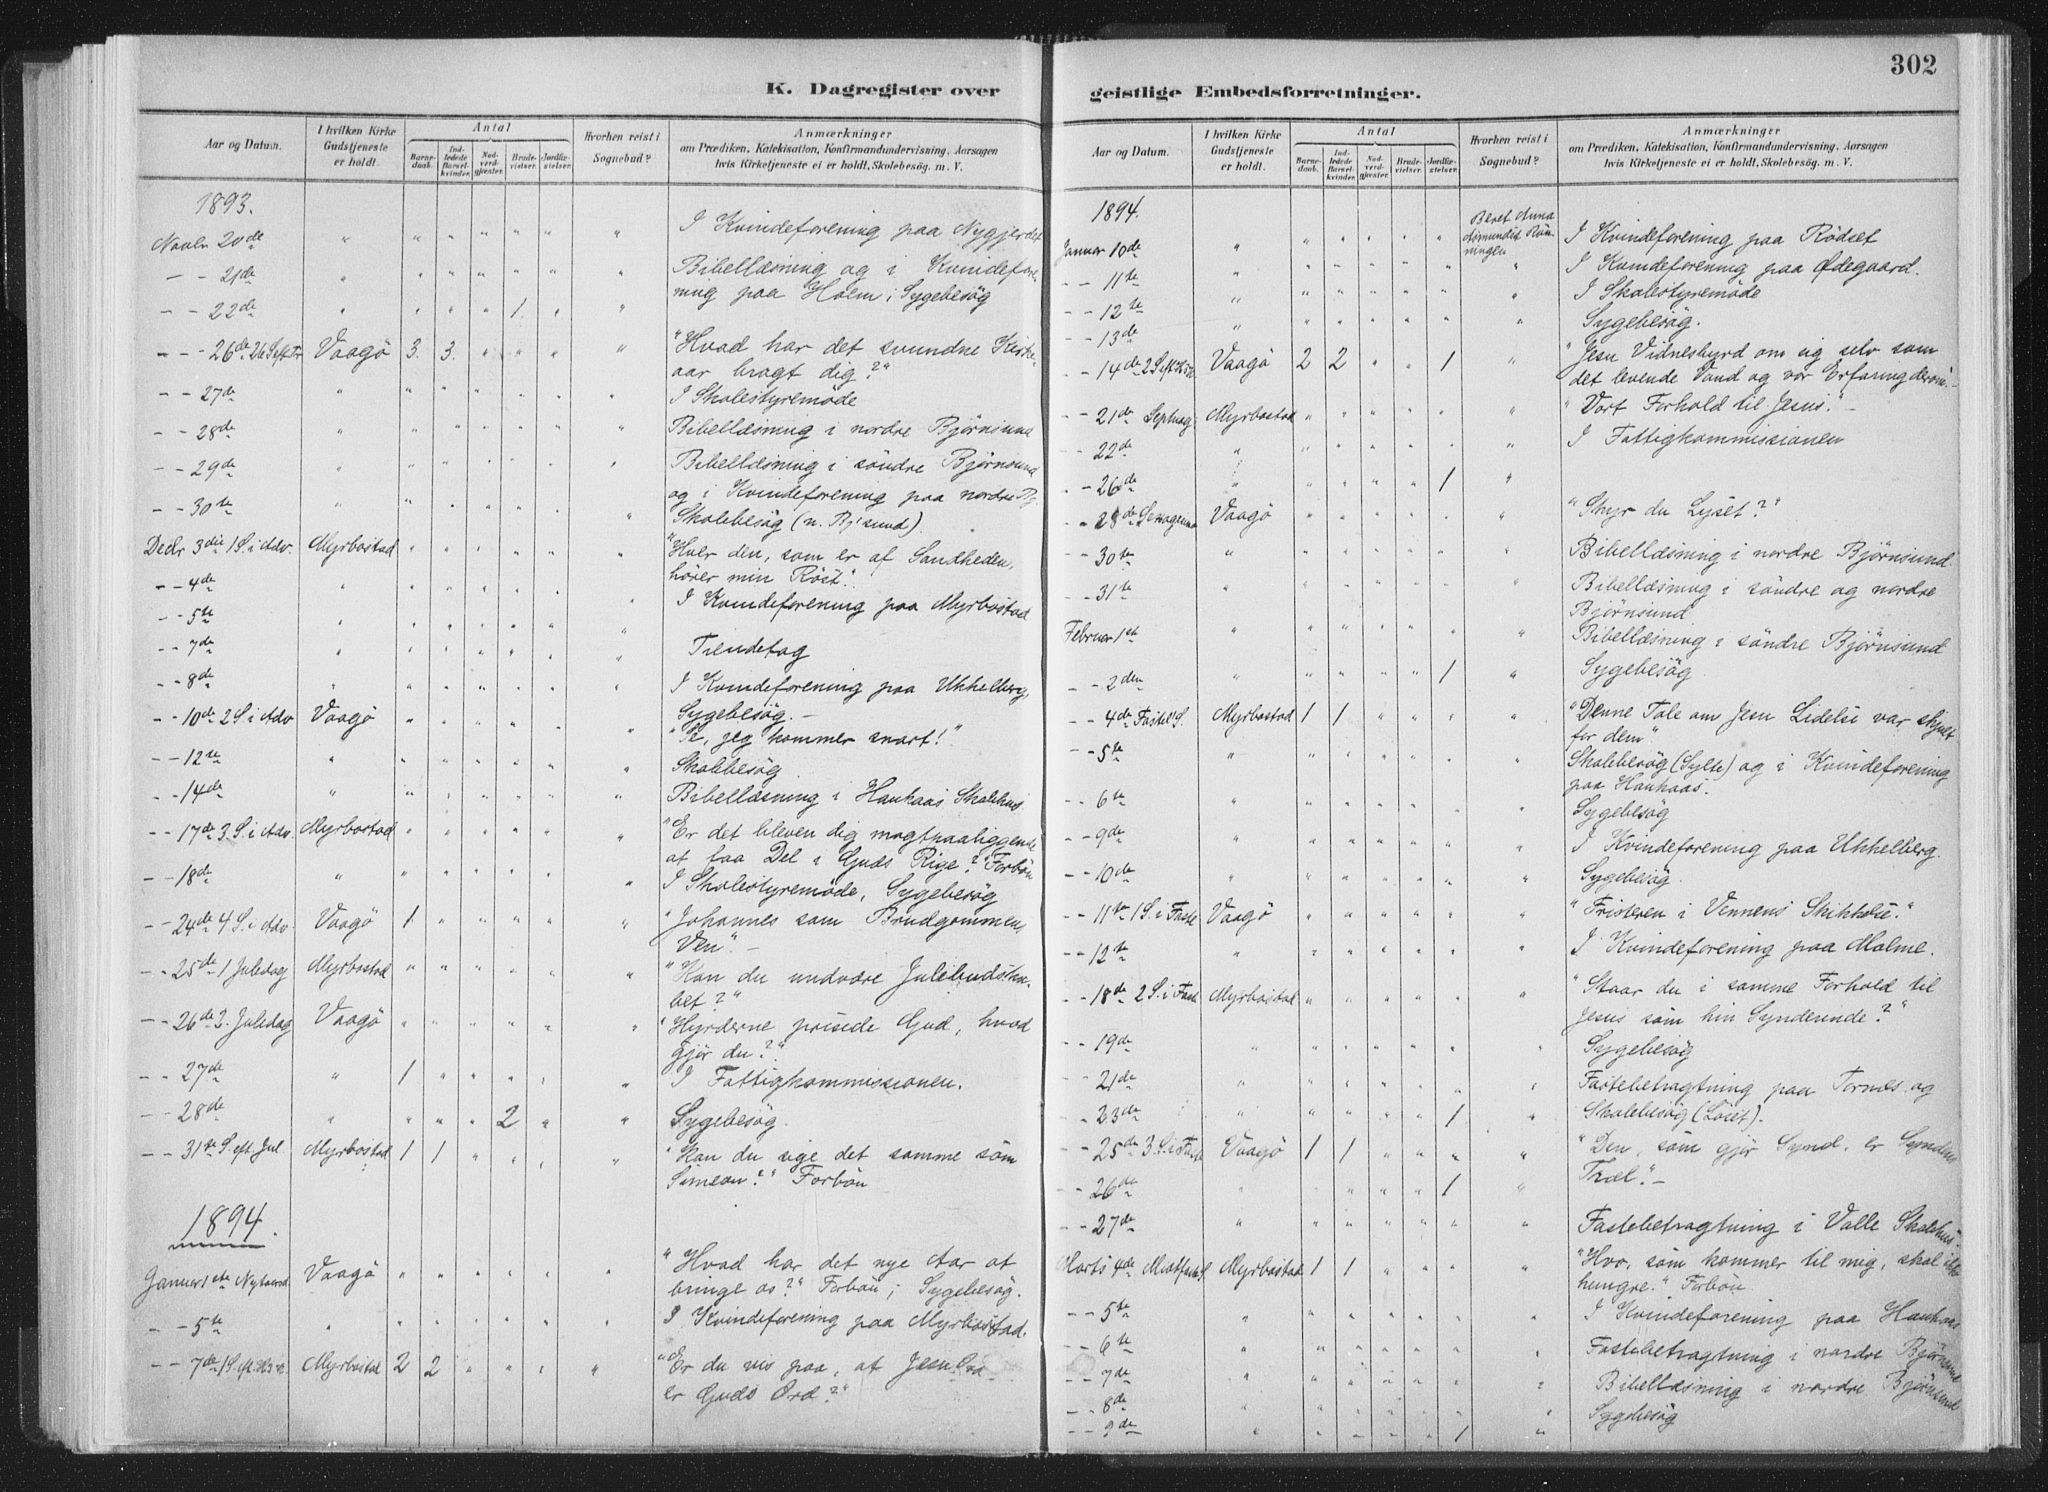 302
K. Dagregister over geistlige Embedsforretninger.
Aar og Datum. I hvilken Kirke Gudstjeneste er holdt. Antal Barnedaab. Indledede Barselkvinder. Nadverdgjæster. Brudevielser. Jordfæstelser. Hvorhen reist i Sognebud? Anmærkninger om Prædiken, Katekisation, Konfirmandundervisning, Aarsagen hvis Kirketjeneste ei er holdt, Skolebesög m. V.
1893.
Novbr 20de " " " " " " " I Kvindeforening paa Nygjerdet
- - 21de " " " " " " " Bibellæsning og i Kvindefore-
ning paa Holm; Sygebesøg
- - 22de " " " " 1 " "
- - 26de 26 S eft Tr Vaagö 3. 3. " " " " "Hvad har det svundne Kirke-
aar bragt dig?"
- - 27de " " " " " " " I Skolestyremöde
- - 28de " " " " " " " Bibellæsning i nordre Björnsund
- - 29de " " " " " " " Bibellæsning i söndre Björnsund
og i Kvindeforening paa nordre Bj.
- - 30te " " " " " " " Skolebesög (n. Bj'sund).
Decbr 3die 1 S. i Adv. Myrbostad " " " " " " "Hver den, som er af Sandheden,
hörer min Röst".
- - 4de " " " " " " " I Kvindeforening paa Myrbostad
- - 5te " " " " " " "
- - 7de " " " " " " " Tiendetag
- - 8de " " " " " " " I Kvindeforening paa Ukkelberg,
Sygebesög. -
- - 10de 2 S i Adv Vaagö " " " " " " "Se, jeg kommer snart!"
- - 12te " " " " " " " Skolebesög
- - 14de " " " " " " " Bibellæsning i Haukaas Skolehus
- - 17de 3. S. i Adv. Myrbostad " " " " " " "Er det bleven dig magtpaaliggende
at faa Del i Guds Rige?" Forbön
- - 18de " " " " " " " I Skolestyremöde, Sygebesög
- - 24de 4 S. i Adv. Vaagö 1 " " " " " "Johannes som Brudgommens
Ven". -
- - 25de 1 Juledag Myrbostad " " " " " " "Kan du undvære Julebudska-
bet?"
- - 26de 2. Juledag Vaagö " " " " " " "Hyrderne prisede Gud, hvad
gjör du?"
- - 27de " 1 " " " " " I Fattigkommissionen.
- - 28de " " " " 2 " " Sygebesög.
- - 31te S. eft Jul Myrbostad 1 1 " " " " "Kan du sige det samme som
Simeon?" Forbön
1894.
Januar 1ste Nytaarsd. Vaagö " " " " " " "Hvad har det nye Aar at
bringe os?" Forbön; Sygebesög.
- - 5te " " " " " " " I Kvindeforening paa Myrbostad.
- - 7de 1 S. eft. H3K Myrbostad 2 2 " " " " "Er du vis paa, at Jesu Ord
er Guds Ord?"
Aar og Datum. I hvilken Kirke Gudstjeneste er holdt. Antal Barnedaab. Indledede Barselkvinder. Nadverdgjæster. Brudevielser. Jordfæstelser. Hvorhen reist i Sognebud? Anmærkninger om Prædiken, Katekisation, Konfirmandundervisning, Aarsagen hvis Kirketjeneste ei er holdt, Skolebesög m. V.
1894.
Januar 10de " " " " " " Beret Anna Asmundsd. Rönningen I Kvindeforening paa Rödset
- - 11te " " " " " " " I Kvindeforening paa Ødegaard.
- - 12te " " " " " " " I Skolestyremöde
- - 13de " " " " " " " Sygebesög.
- - 14de 2 S eft H3K Vaagö 2 2 " " 1 " "Jesu Vidnesbyrd om sig selv som
det levende Vand og vor Erfaring derom". -
- - 21de Septuag Myrbostad " " " " " " "Vort Forhold til Jesus." -
- - 22de " " " " " " " I Fattigkommissionen
- - 26de " " " " " 1 "
- - 28de Sexagesima Vaagö " " " " " " "Skyr du Lyset?"
- - 30te " " " " " " " Bibellæsning i nordre Björnsund
- - 31te " " " " " " " Bibellæsning i söndre og nordre
Björnsund
Februar 1ste " " " " " " " Bibellæsning i söndre Björnsund
- - 2den " " " " " 1 " Sygebesög
- - 4de Fastel. S. Myrbostad 1 1 " " " " "Denne Tale om Jesu Lidelse var skjult
for dem".
- - 5te " " " " " " " Skolebesög (Sylte) og i Kvindeforening
paa Haukaas.
- - 6te " " " " " " " Sygebesög
- - 9de " " " " " " " I Kvindeforening paa Ukkelberg.
- - 10de " " " " " " " Sygebesög.
- - 11te 1 S. i Faste Vaagö " " " " " " "Fristeren i Vennens Skikkelse."
- - 12te " " " " " " " I Kvindeforening paa Malme.
- - 18de 2 S. i Fast Myrbostad " " " " " " "Staar du i samme Forhold til
Jesus som hin Synderinde?"
- - 19de " " " " " " " Sygebesög
- - 21de " " " " " " " Fastebetragtning paa Tornæs og
- - 23de " " " " " 1 " Skolebesög (Löset).
- - 25de 3. S. i Faste Vaagö 1 1 " " " " "Den, som gjör Synd, er Syndens
Træl". -
- - 26de " " " " " 1 "
- - 27de " " " " " " " Fastebetragtning i Valle Skolehus.
Marts 4de Midtfaste S. Myrbostad 1 1 " " " " "Hvo, som kommer til mig, skal ikke
hungre." Forbön
- - 5te " " " " " " " I Kvindeforening paa Haukaas
- - 6te " " " " " " " Fastebetragtning i nordre Björnsund
- - 7de " " " " " " " Bibellæsning i nordre Björnsund
- - 8de " " " " " " " Sygebesög
- - 9de " " " " " 1 "